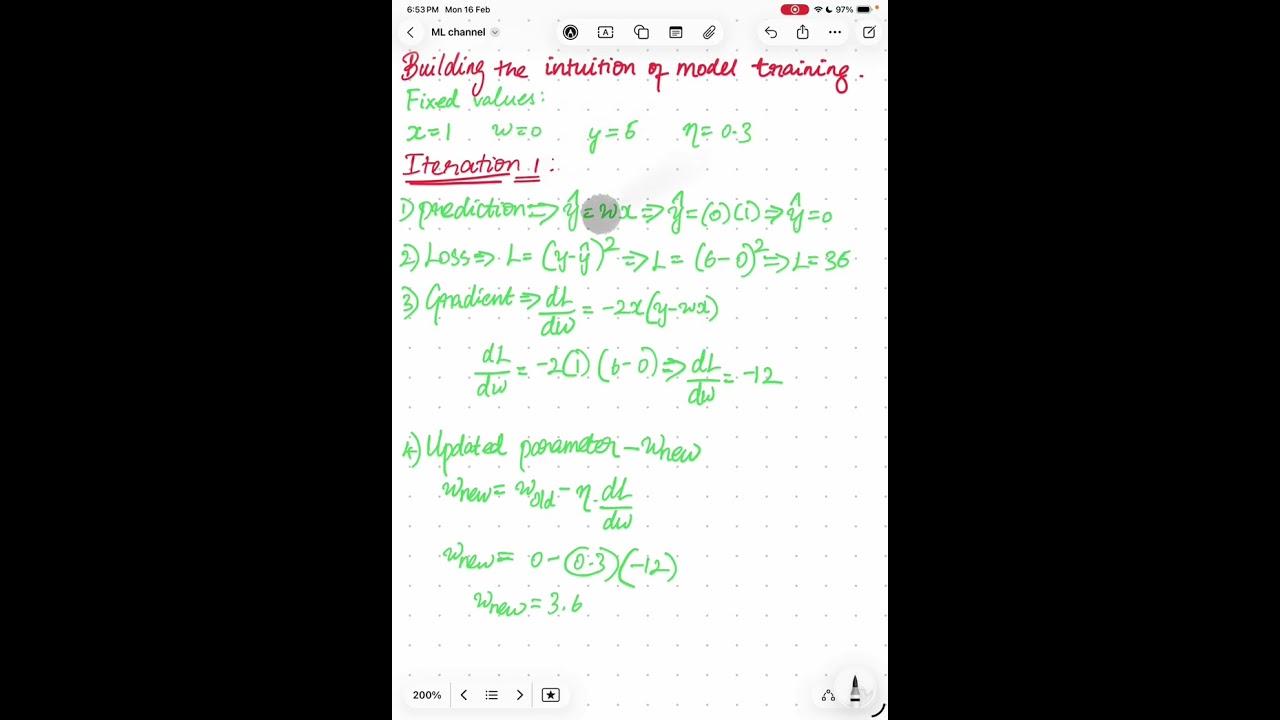 6:53 PM Mon 16 Feb 97%
ML channel
Building the intuition of model training.
Fixed values:
x=1 w=0 y=6 η=0.3
Iteration 1:
1) prediction ⇒ ŷ=wx ⇒ ŷ=(0)(1) ⇒ ŷ=0
2) Loss ⇒ L=(y-ŷ)² ⇒ L=(6-0)² ⇒ L=36
3) Gradient ⇒ dL/dw = -2x(y-wx)
dL/dw = -2(1)(6-0) ⇒ dL/dw = -12
4) Updated parameter - wnew
wnew = wold - η.dL/dw
wnew = 0-(0.3)(-12)
wnew = 3.6
200%